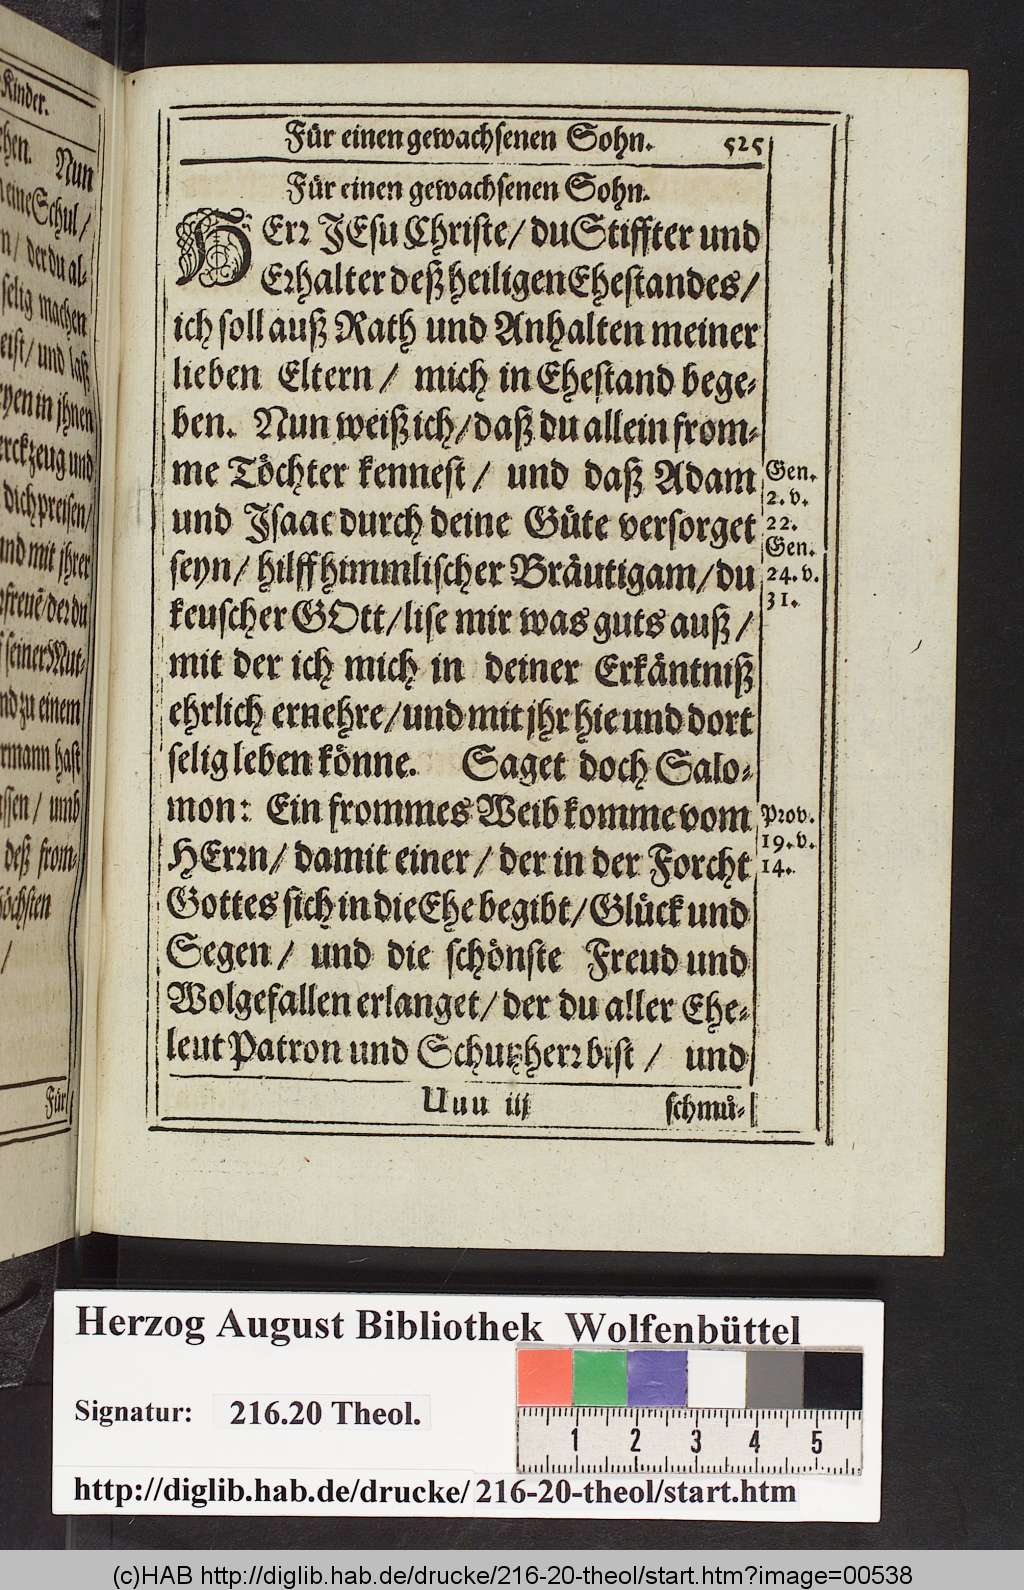 Kinder.
ehen. Nun
meine Schul/
n/ der du al-
selig machen
eist/ und laß
eyen in jhnen
erckzeug und
dich preisen/
und mit jhrer
freuē/der du
seiner Mut-
nd zu einem
ermann hast
assen/ umb
deß from-
höchsten
/
Für
Für einen gewachsenen Sohn. 525
Für einen gewachsenen Sohn.
HErr JEsu Christe/ du Stiffter und
Erhalter deß heiligen Ehestandes/
ich soll auß Rath und Anhalten meiner
lieben Eltern/ mich in Ehestand bege-
ben. Nun weiß ich/ daß du allein from-
me Töchter kennest/ und daß Adam
und Isaac durch deine Güte versorget
seyn/ hilff himmlischer Bräutigam/ du
keuscher GOtt/ lise mir was guts auß/
mit der ich mich in deiner Erkäntniß
ehrlich ernehre/ und mit jhr hie und dort
selig leben könne. Saget doch Salo-
mon: Ein frommes Weib komme vom
HErrn/ damit einer/ der in der Forcht
Gottes sich in die Ehe begibt/ Glück und
Segen/ und die schönste Freud und
Wolgefallen erlanget/ der du aller Ehe-
leut Patron und Schutzherr bist/ und
Gen.
2. v.
22.
Gen.
24. v.
31.
Prov.
19. v.
14.
Uuu iij schmü-
Herzog August Bibliothek Wolfenbüttel
Signatur: 216.20 Theol.
1 2 3 4 5
http://diglib.hab.de/drucke/216-20-theol/start.htm
(c)HAB http://diglib.hab.de/drucke/216-20-theol/start.htm?image=00538